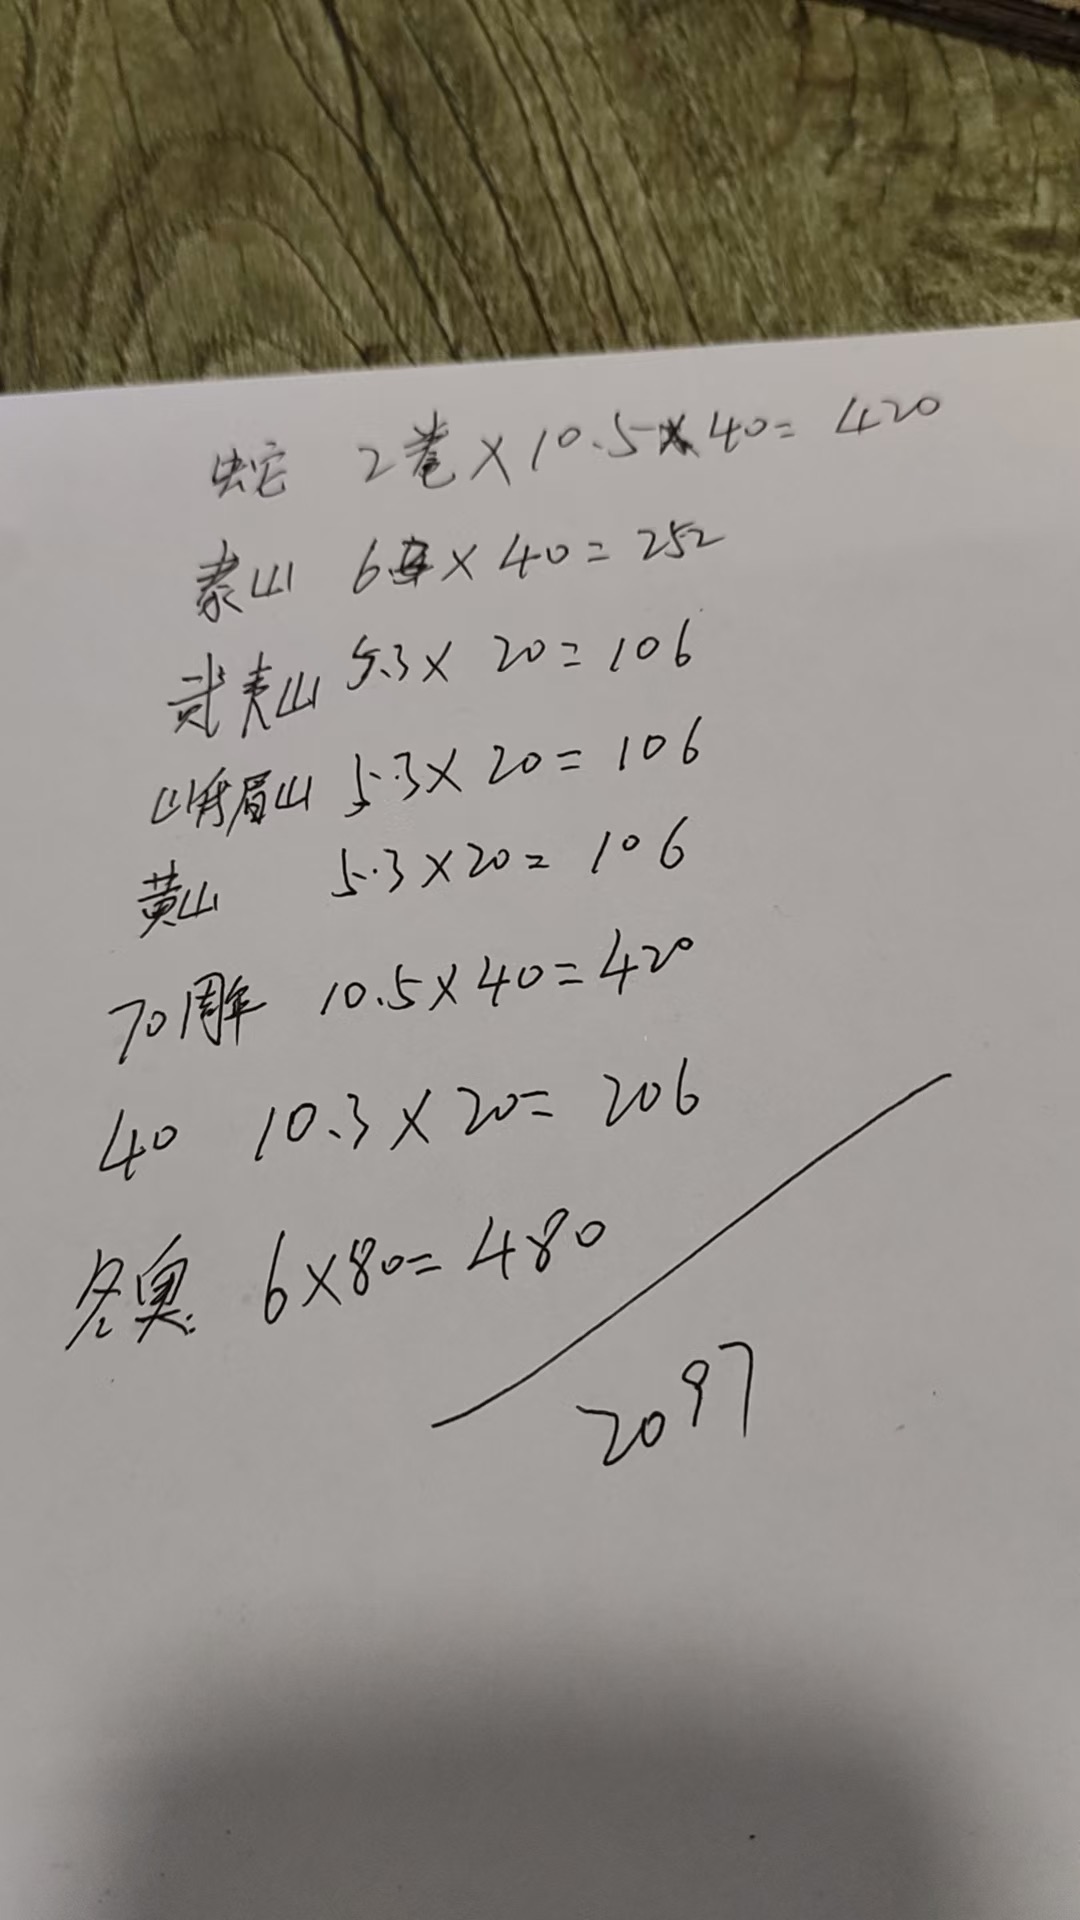 蛇 2卷×10.5×40=420
泰山 6×40=252
武夷山 5.3×20=106
峨眉山 5.3×20=106
黄山 5.3×20=106
70周年 10.5×40=420
40 10.3×20=206
冬奥 6×80=480
2097